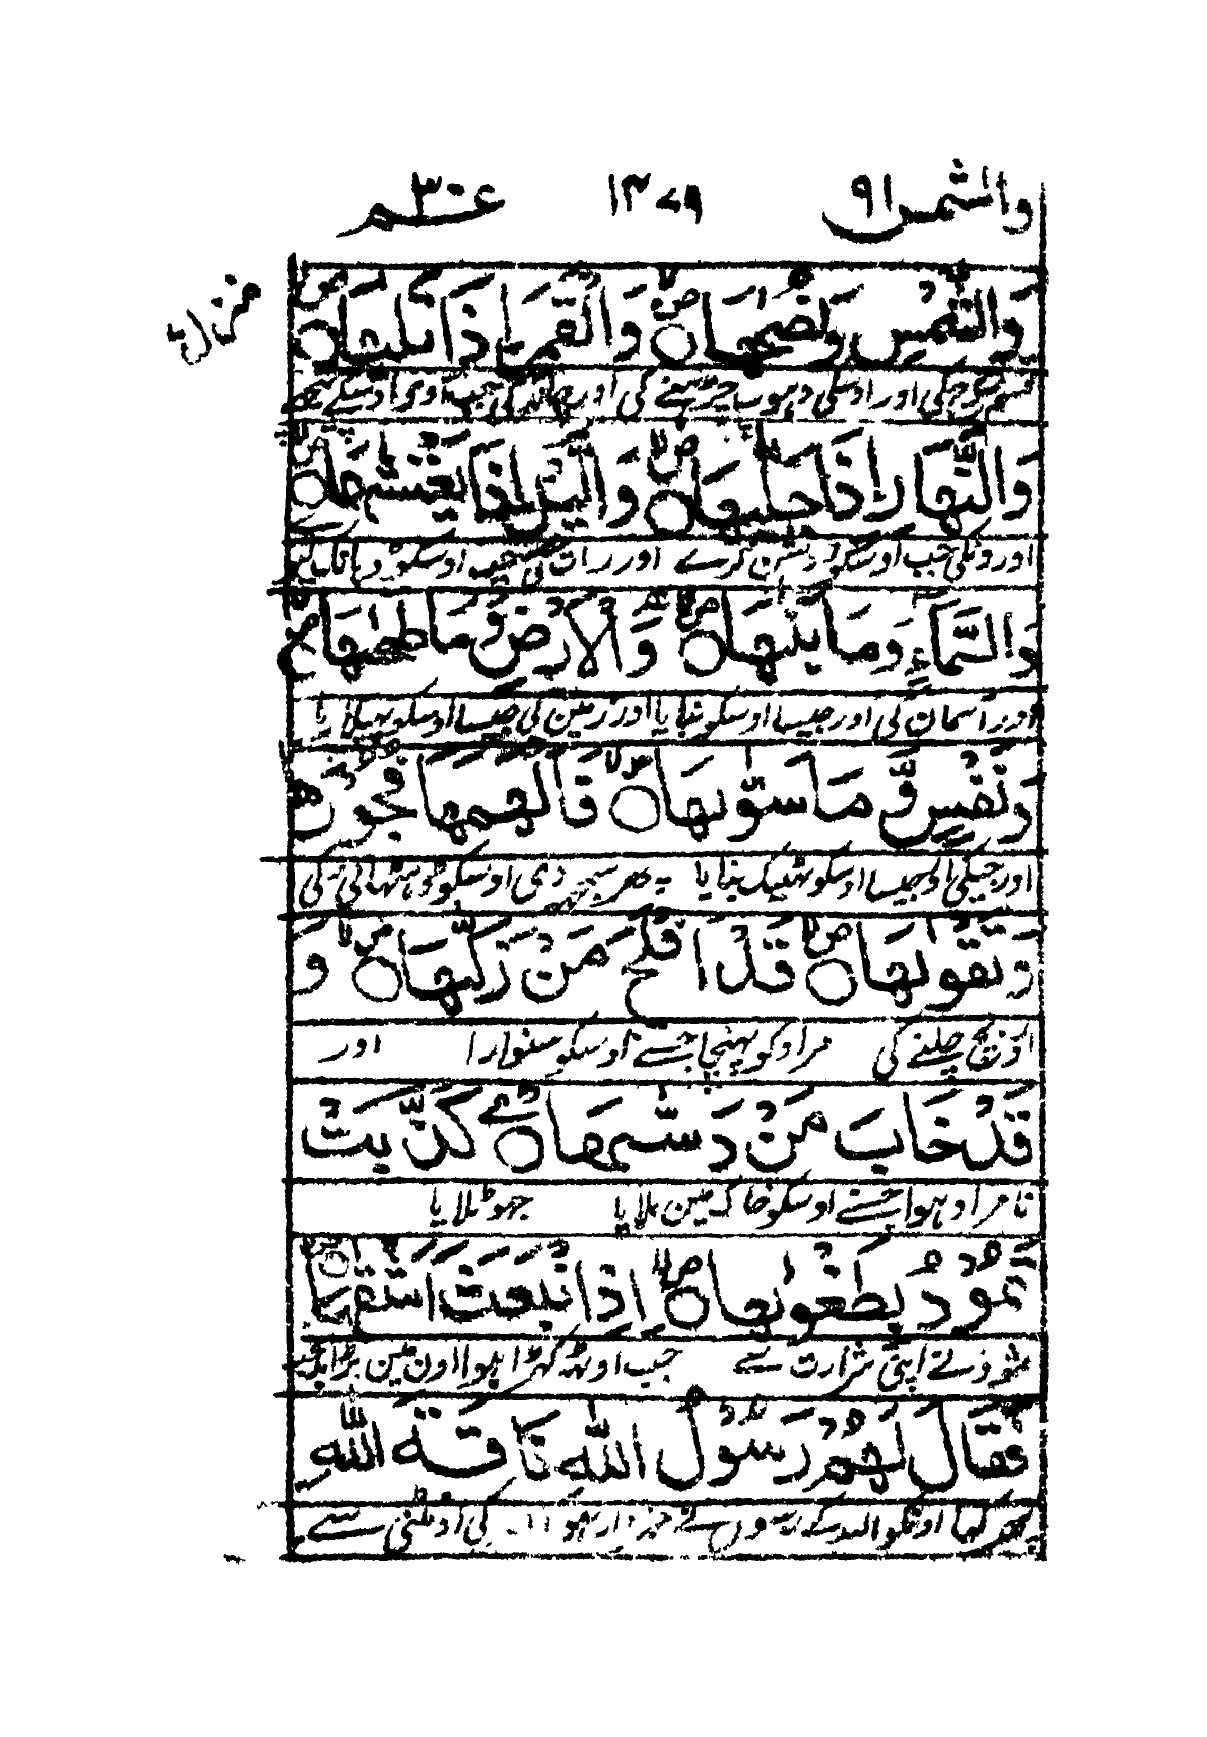 والشمس ٩١ ١٣٧٩ عم ٣٠
منزل
وَالشَّمْسِ وَضُحٰىهَا وَالْقَمَرِ اِذَا تَلٰىهَا
قسم سورج کی اور اوسکی دہوپ چڑہنے کی اور چاند کی جب آوی اوسکے پیچھے
وَالنَّهَارِ اِذَا جَلّٰىهَا وَالَّيْلِ اِذَا يَغْشٰىهَا
اور دنکی جب اوسکو روشن کرے اور رات کی جب اوسکو ڈہانک لیوے
وَالسَّمَآءِ وَمَا بَنٰىهَا وَالْاَرْضِ وَمَا طَحٰىهَا
اور آسمان کی اور جیسا اوسکو بنایا اور زمین کی جیسا اوسکو پہیلایا
وَنَفْسٍ وَّمَا سَوّٰىهَا فَاَلْهَمَهَا فُجُوْرَهَا
اور جیکی اور جیسا اوسکو ٹھیک بنایا پھر سمجھ دی اوسکو ڈھٹائی کی
وَتَقْوٰىهَا قَدْ اَفْلَحَ مَنْ زَكّٰىهَا وَ
اور بچ چلنے کی مراد کو پہنچا جسنے اوسکو سنوارا اور
قَدْ خَابَ مَنْ دَسّٰىهَا كَذَّبَتْ
نامراد ہوا جسنے اوسکو خاک مین ملایا جھوٹلایا
ثَمُوْدُ بِطَغْوٰىهَا اِذِ انْۢبَعَثَ اَشْقٰىهَا
ثمود نے اپنی شرارت سے جب اوٹھ کھڑا ہوا اون مین بڑا بدبخت
فَقَالَ لَهُمْ رَسُوْلُ اللّٰهِ نَاقَةَ اللّٰهِ
پھر کہا اونکو اللہ کے رسول نے خبردار ہو کی اونٹنی سے